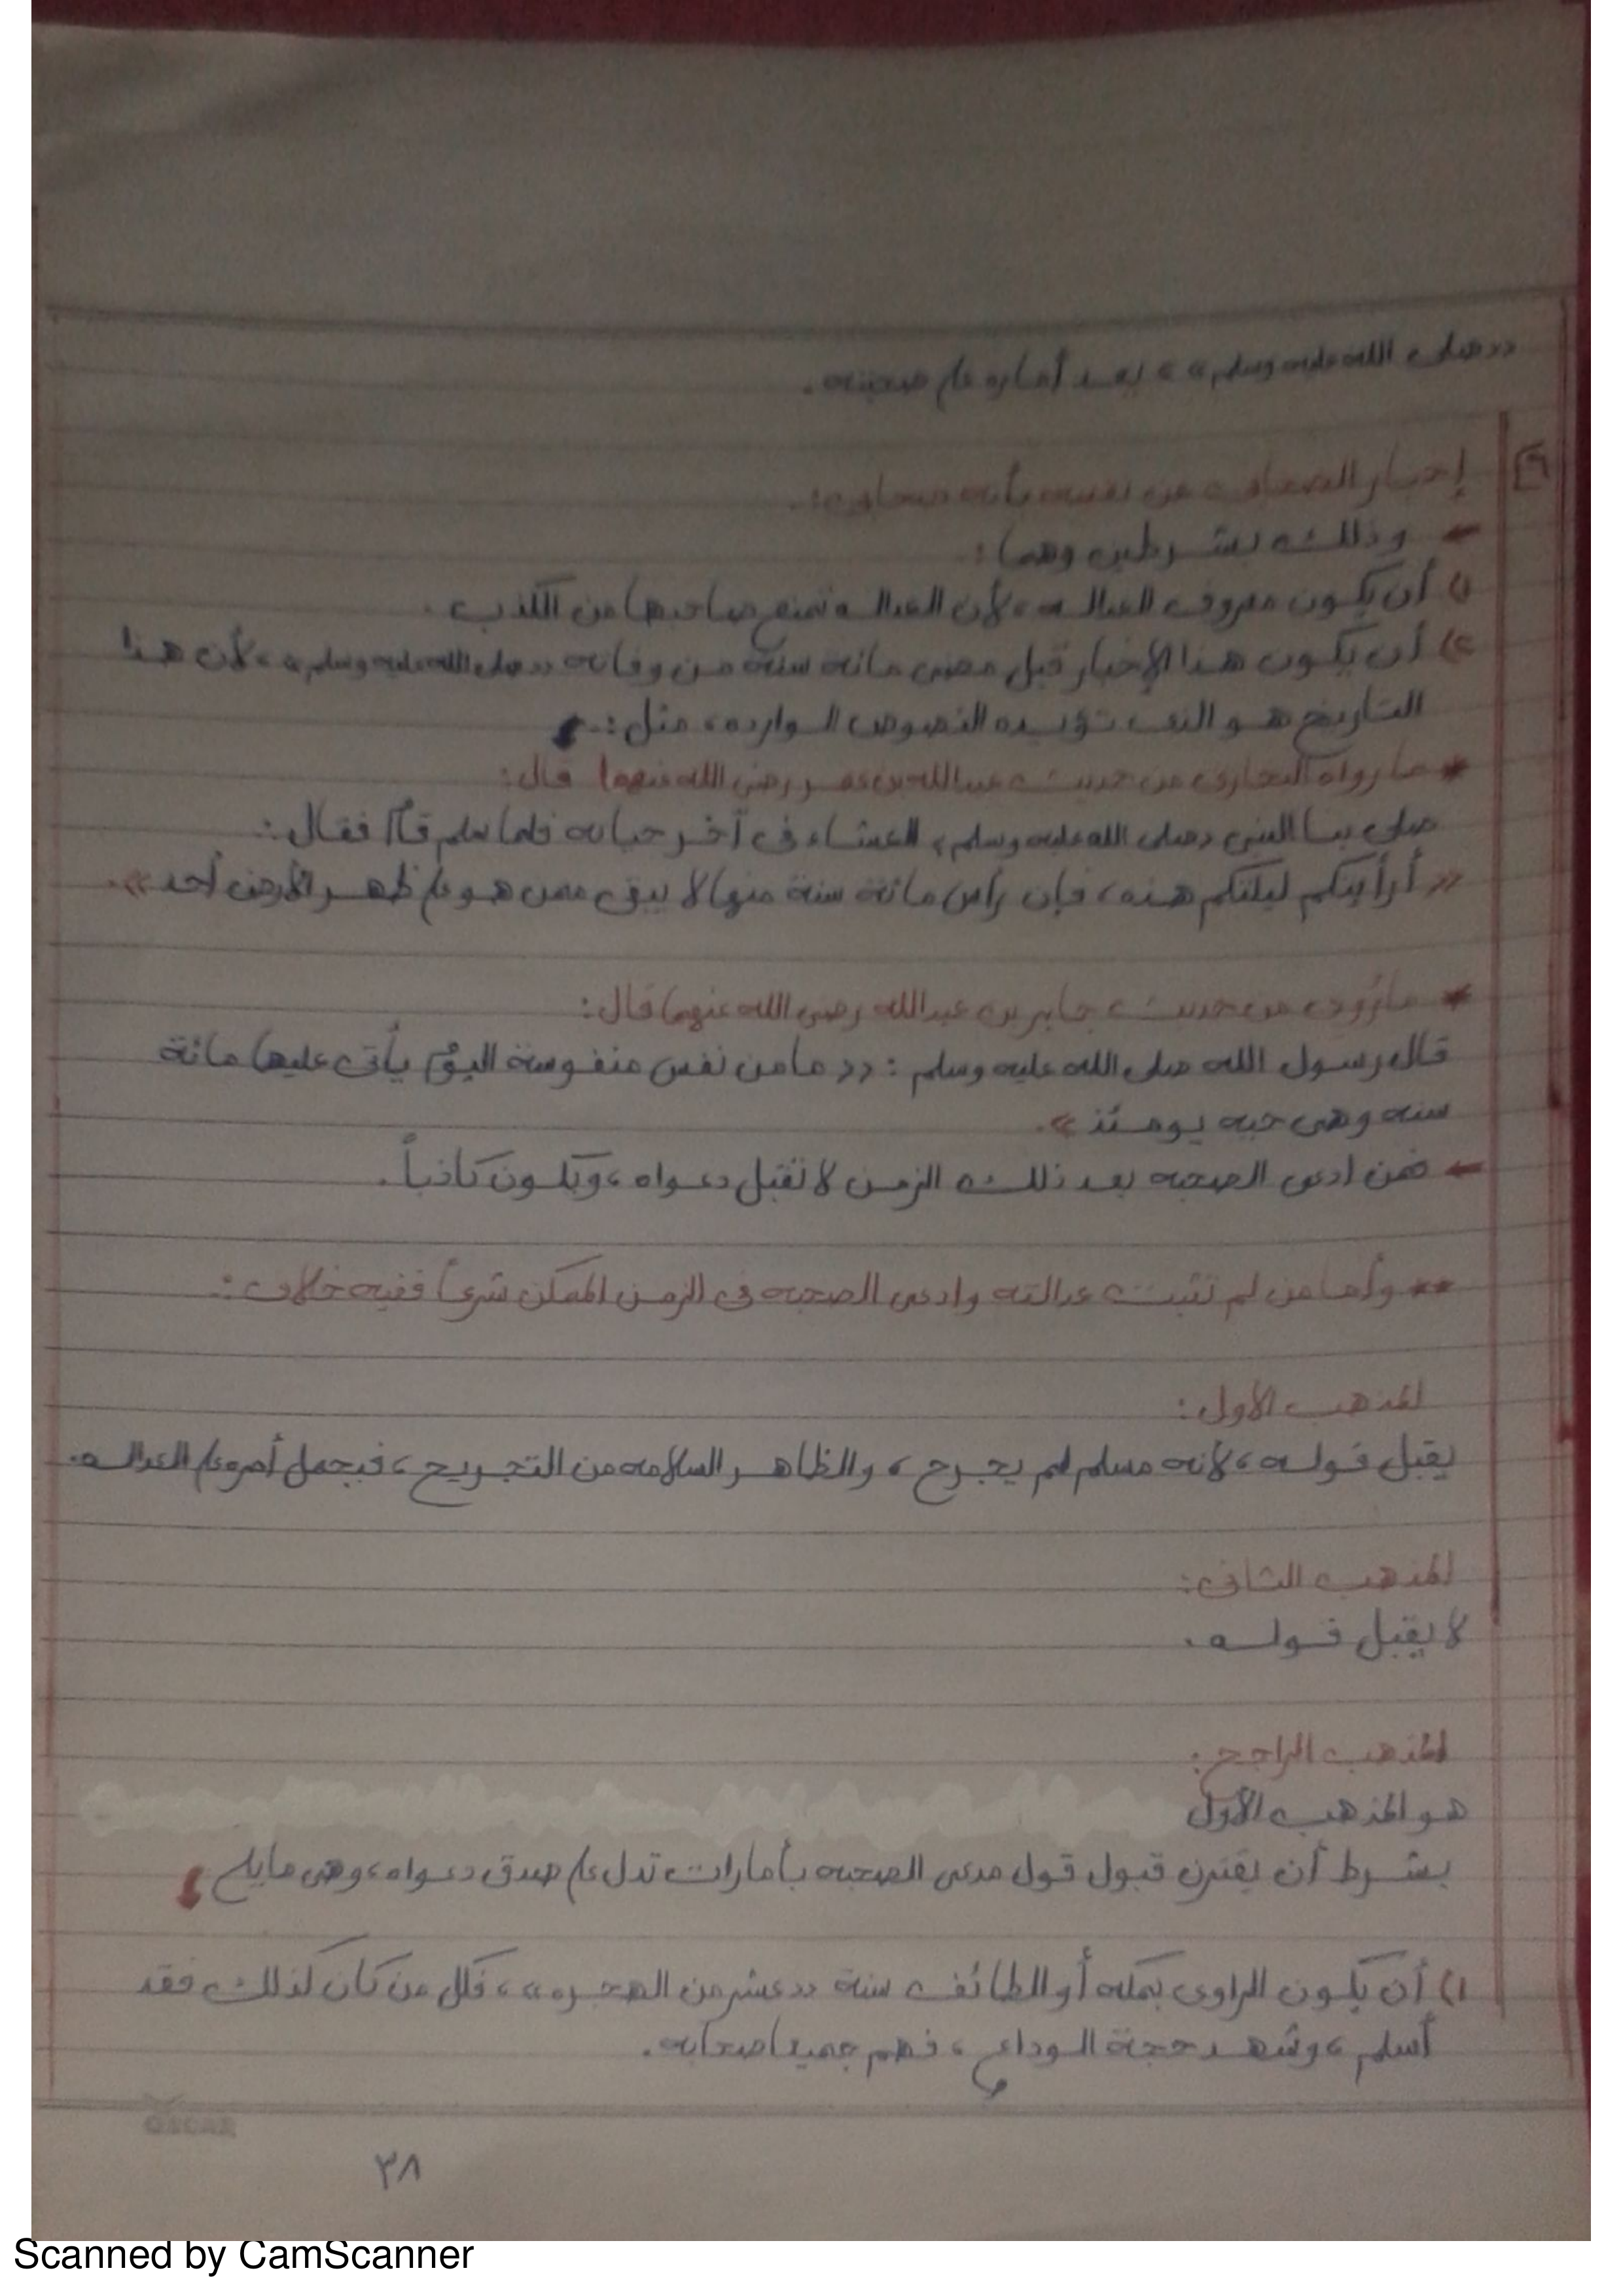 «صلى الله عليه وسلم» ، يعد أماره على صحبته .
٦
إخبار الصحابى عن نفسه بأنه صحابى :
← وذلك بشرطين وهما :
١) أن يكون معروف العداله ، لأن العداله تمنع صاحبها من الكذب .
٢) أن يكون هذا الإخبار قبل مضى مائه سنه من وفاته «صلى الله عليه وسلم» ، لأن هذا
التاريخ هو الذى تؤيده النصوص الوارده ، مثل :
* ما رواه البخارى من حديث عبدالله بن عمر رضى الله عنهما قال :
صلى بنا النبى «صلى الله عليه وسلم» العشاء فى آخر حياته فلما سلم قام فقال :
« أرأيتكم ليلتكم هذه ، فإن رأس مائة سنة منها لا يبقى ممن هو على ظهر الأرض أحد » .
* ما رُوى من حديث جابر بن عبدالله رضى الله عنهما قال :
قال رسول الله صلى الله عليه وسلم : « ما من نفس منفوسة اليوم يأتى عليها مائة
سنه وهى حيه يومئذ » .
← فمن ادعى الصحبه بعد ذلك الزمن لا تقبل دعواه ، ويكون كاذباً .
** وأما من لم تثبت عدالته وادعى الصحبه فى الزمن الممكن شرعاً ففيه خلاف :
المذهب الأول :
يقبل قوله ، لأنه مسلم لم يجرح ، والظاهر السلامه من التجريح ، فيحمل أمره على العداله .
المذهب الثانى :
لا يقبل قوله .
المذهب الراجح :
هو المذهب الأول
بشرط أن يقترن قبول قول مدعى الصحبه بأمارات تدل على صدق دعواه ، وهى ما يلى
١) أن يكون الراوى بمكه أو الطائف سنة «عشر من الهجره» ، فكل من كان كذلك فقد
أسلم ، وشهد حجة الوداع ، فهم جميعا صحابه .
OSCAR
٣٨
Scanned by CamScanner